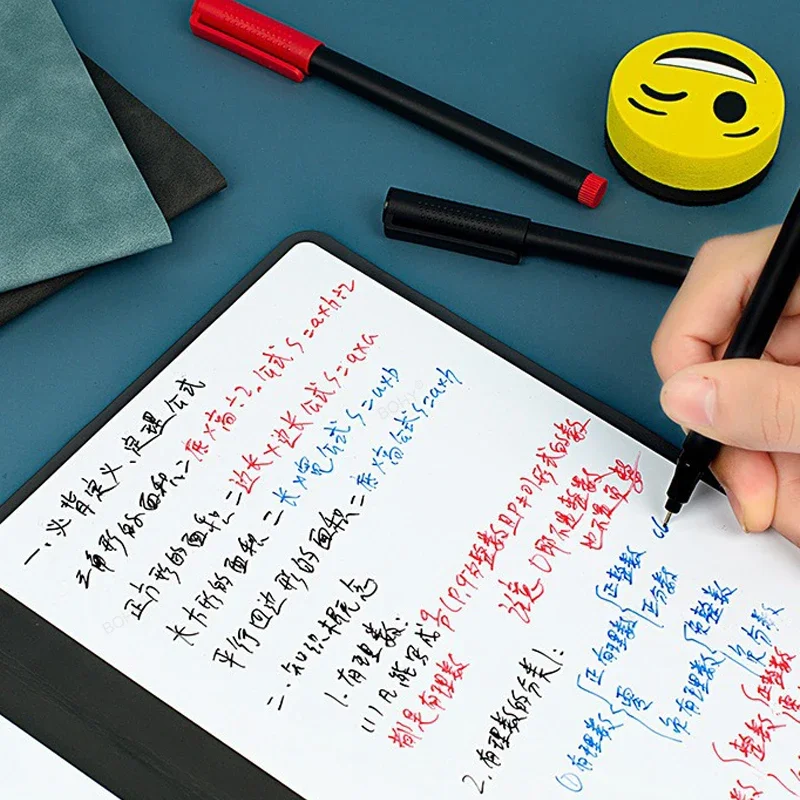 一、必背定义、定理公式
三角形的面积=底×高÷2。公式 S=a×h÷2
正方形的面积=边长×边长 公式 S=a×a
长方形的面积=长×宽 公式 S=a×b
平行四边形的面积=底×高 公式 S=a×h
二、知识概念
1.有理数:
(1)凡能写成 (p,q为整数且p≠0)形式的数
都是有理数
注意 0即不是整数
也不是负数
2.有理数的分类1:
①有理数
正有理数
正整数
正分数
零
负有理数
负整数
负分数
整数
正整数
零
BOHV